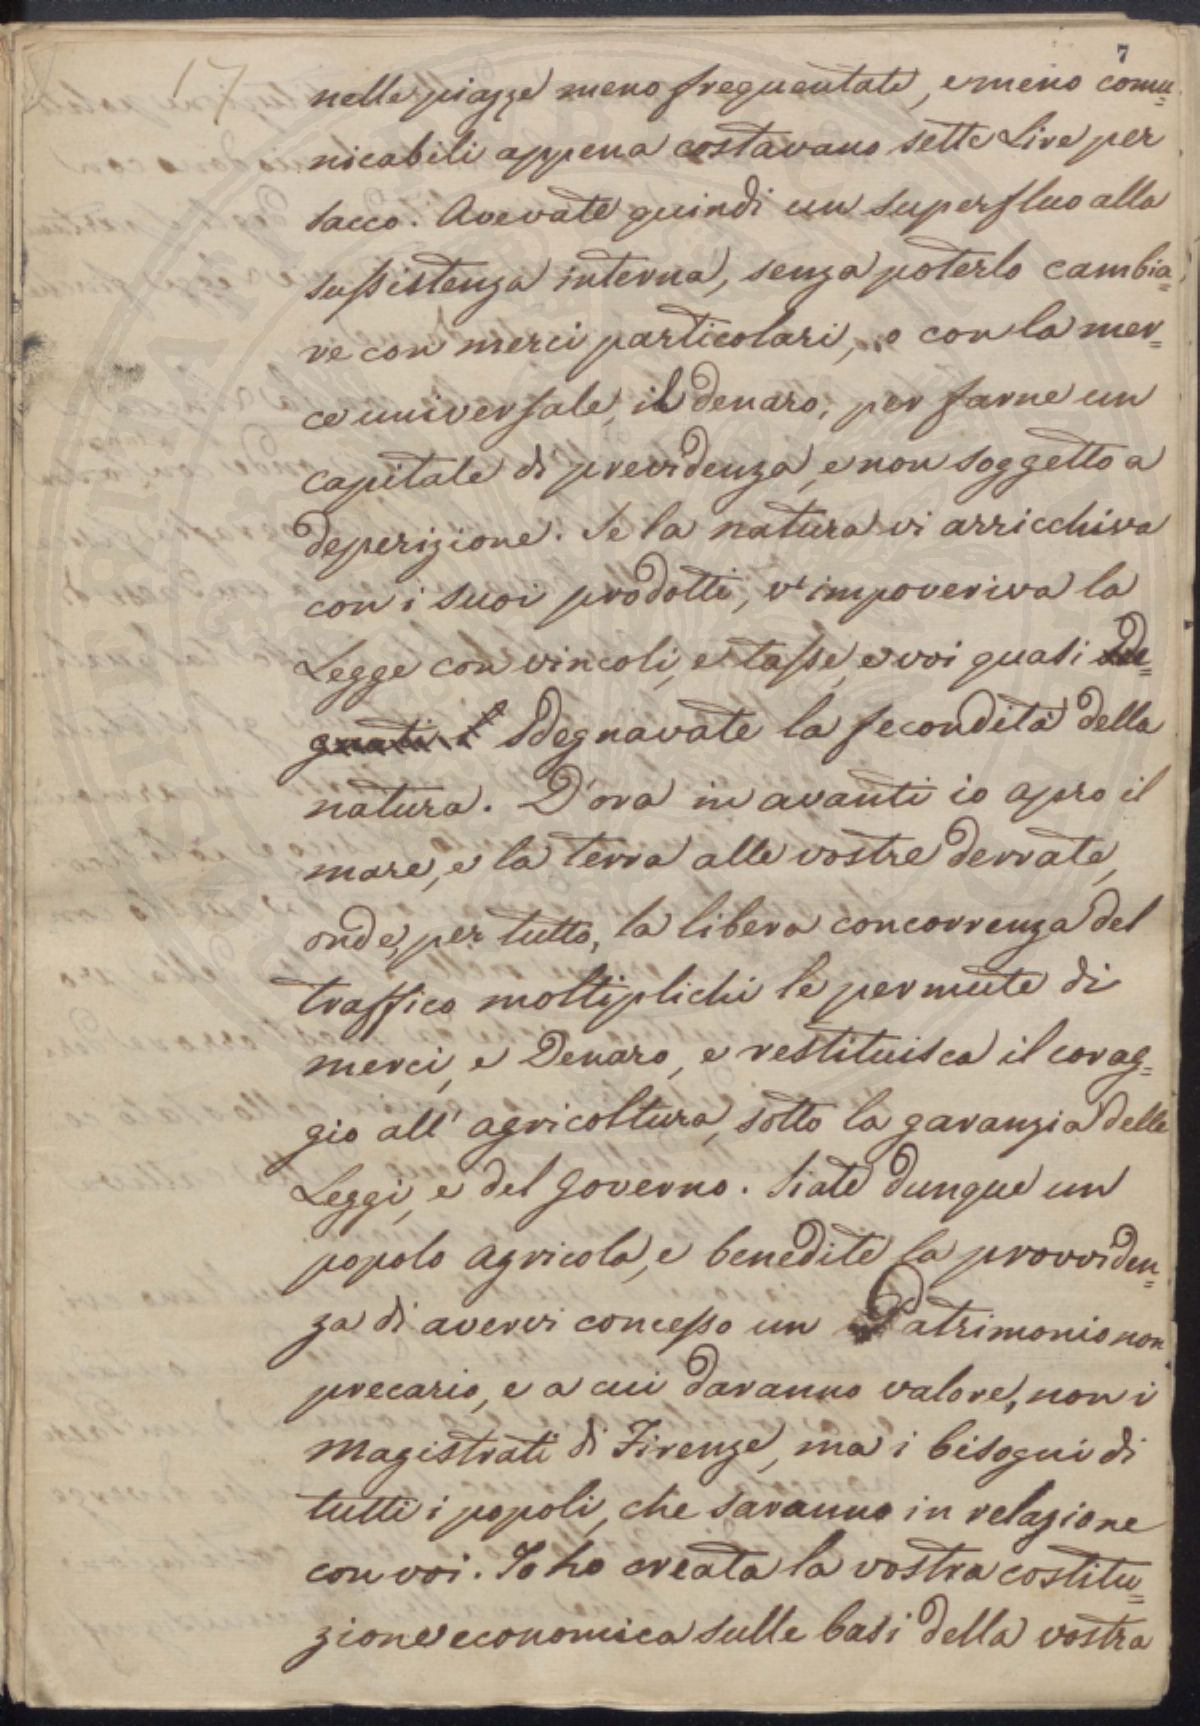 7
17
nelle piazze meno frequentate, e meno comu=
nicabili appena costavano sette Lire per
sacco. Avevate quindi un superfluo alla
sussistenza interna, senza poterlo cambia=
re con merci particolari, o con la mer=
ce universale, il denaro, per farne un
capitale di previdenza, e non soggetto a
deperizione. Se la natura vi arricchiva
con i suoi prodotti, v'impoveriva la
Legge con vincoli, e tasse, e voi quasi
sdegnavate la fecondità della
natura. D'ora in avanti io apro il
mare, e la terra alle vostre derrate,
onde, per tutto, la libera concorrenza del
traffico moltiplichi le permute di
merci, e Denaro, e restituisca il corag=
gio all'agricoltura, sotto la garanzia delle
Leggi, e del Governo. Siate dunque un
popolo agricola, e benedite la provviden=
za di avervi concesso un Patrimonio non
precario, e a cui daranno valore, non i
Magistrati di Firenze, ma i bisogni di
tutti i popoli, che saranno in relazione
con voi. Io ho creata la vostra costitu=
zione economica sulle basi della vostra